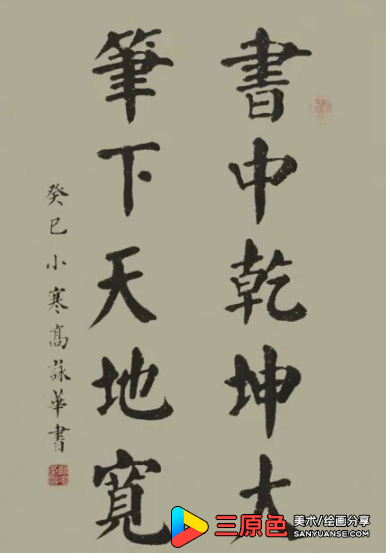 書中乾坤大
筆下天地寬
癸巳小寒高詠華書
三原色
美术/绘画分享
WWW.SANYUANSE.COM